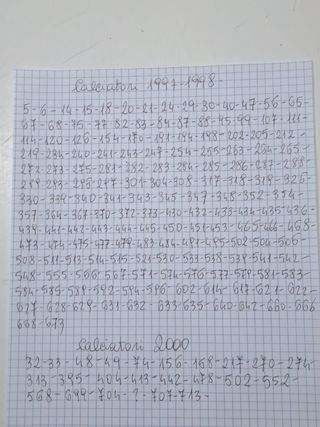 Calciatori 1997-1998
5-6-14-15-18-20-21-24-29-30-40-47-56-65-
67-68-75-77-82-83-84-87-88-95-99-107-111-
114-120-126-154-170-191-194-198-202-205-212-
219-234-240-241-243-247-254-255-263-264-265-
272-273-275-281-282-283-284-285-286-287-288-
289-293-296-297-301-304-308-317-318-319-326-
330-339-340-341-343-345-347-348-352-354-
357-364-367-370-372-373-430-432-433-434-435-436-
439-441-442-443-444-445-450-451-453-465-466-468-
473-474-475-477-479-483-484-491-495-502-504-506-
508-511-513-514-515-521-530-533-538-539-541-542-
548-555-566-567-571-574-576-577-579-581-583-
584-585-589-592-594-596-602-614-617-621-622-
627-628-629-631-632-633-635-640-642-660-666
668-673
Calciatori 2000
32-33-48-49-74-156-168-217-270-274-
313-395-404-413-442-478-502-552-
568-699-704-?-707-713-